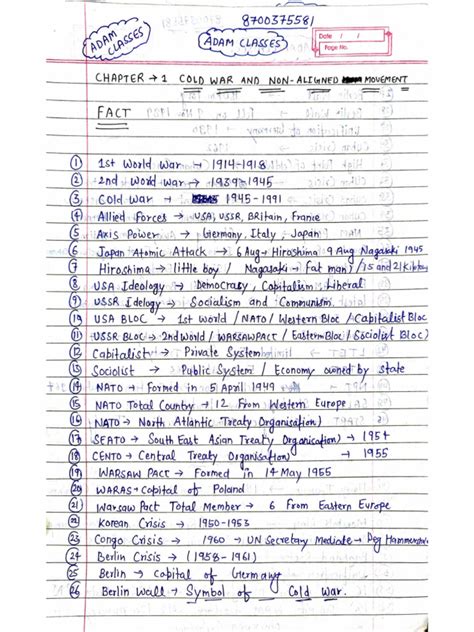 8700375581
ADAM CLASSES
ADAM CLASSES
Date / /
Page No.
CHAPTER → 1 COLD WAR AND NON-ALIGNED MOVEMENT
FACT
① 1st World War → 1914-1918
② 2nd World War → 1939-1945
③ Cold War → 1945-1991
④ Allied Forces → USA, USSR, Britain, France
⑤ Axis Power → Germany, Italy, Japan
⑥ Japan Atomic Attack → 6 Aug → Hiroshima 9 Aug Nagasaki 1945
⑦ Hiroshima → little boy / Nagasaki → Fat man) / 15 and 21 Kiloton
⑧ USA Ideology → Democracy, Capitalism Liberal
⑨ USSR Idelogy → Socialism and Communism.
⑩ USA BLOC → 1st World / NATO / Western Bloc / Capitalist Bloc
⑪ USSR BLOC → 2nd World / WARSAWPACT / Eastern Bloc / Socialist Bloc)
⑫ Capitalist → Private System
⑬ Socialist → Public System / Economy owned by state
⑭ NATO → Formed in 5 April 1949
⑮ NATO Total Country → 12 From Western Europe
⑯ NATO → North Atlantic Treaty Organisation)
⑰ SEATO → South East Asian Treaty Organisation) → 1954
⑱ CENTO → Central Treaty Organisation) → 1955
⑲ WARSAW PACT → Formed in 14 May 1955
⑳ WARAS → Capital of Poland
㉑ Warsaw Pact Total Member → 6 From Eastern Europe
㉒ Korean Crisis → 1950-1953
㉓ Congo Crisis → 1960 → UN Secretary Mediate → Deg Hammerskon
㉔ Berlin Crisis → (1958-1961)
㉕ Berlin → Capital of Germany
㉖ Berlin Wall → Symbol of Cold War.